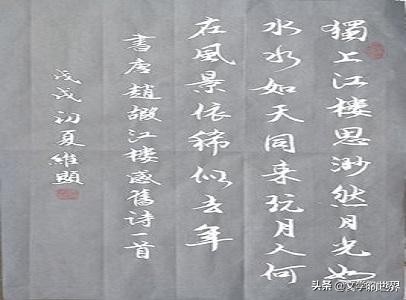 獨上江樓思渺然月光如
水水如天同来玩月人何
在風景依稀似去年
書唐趙嘏江樓感舊诗一首
戊戌初夏維顯
头条 @文学的世界